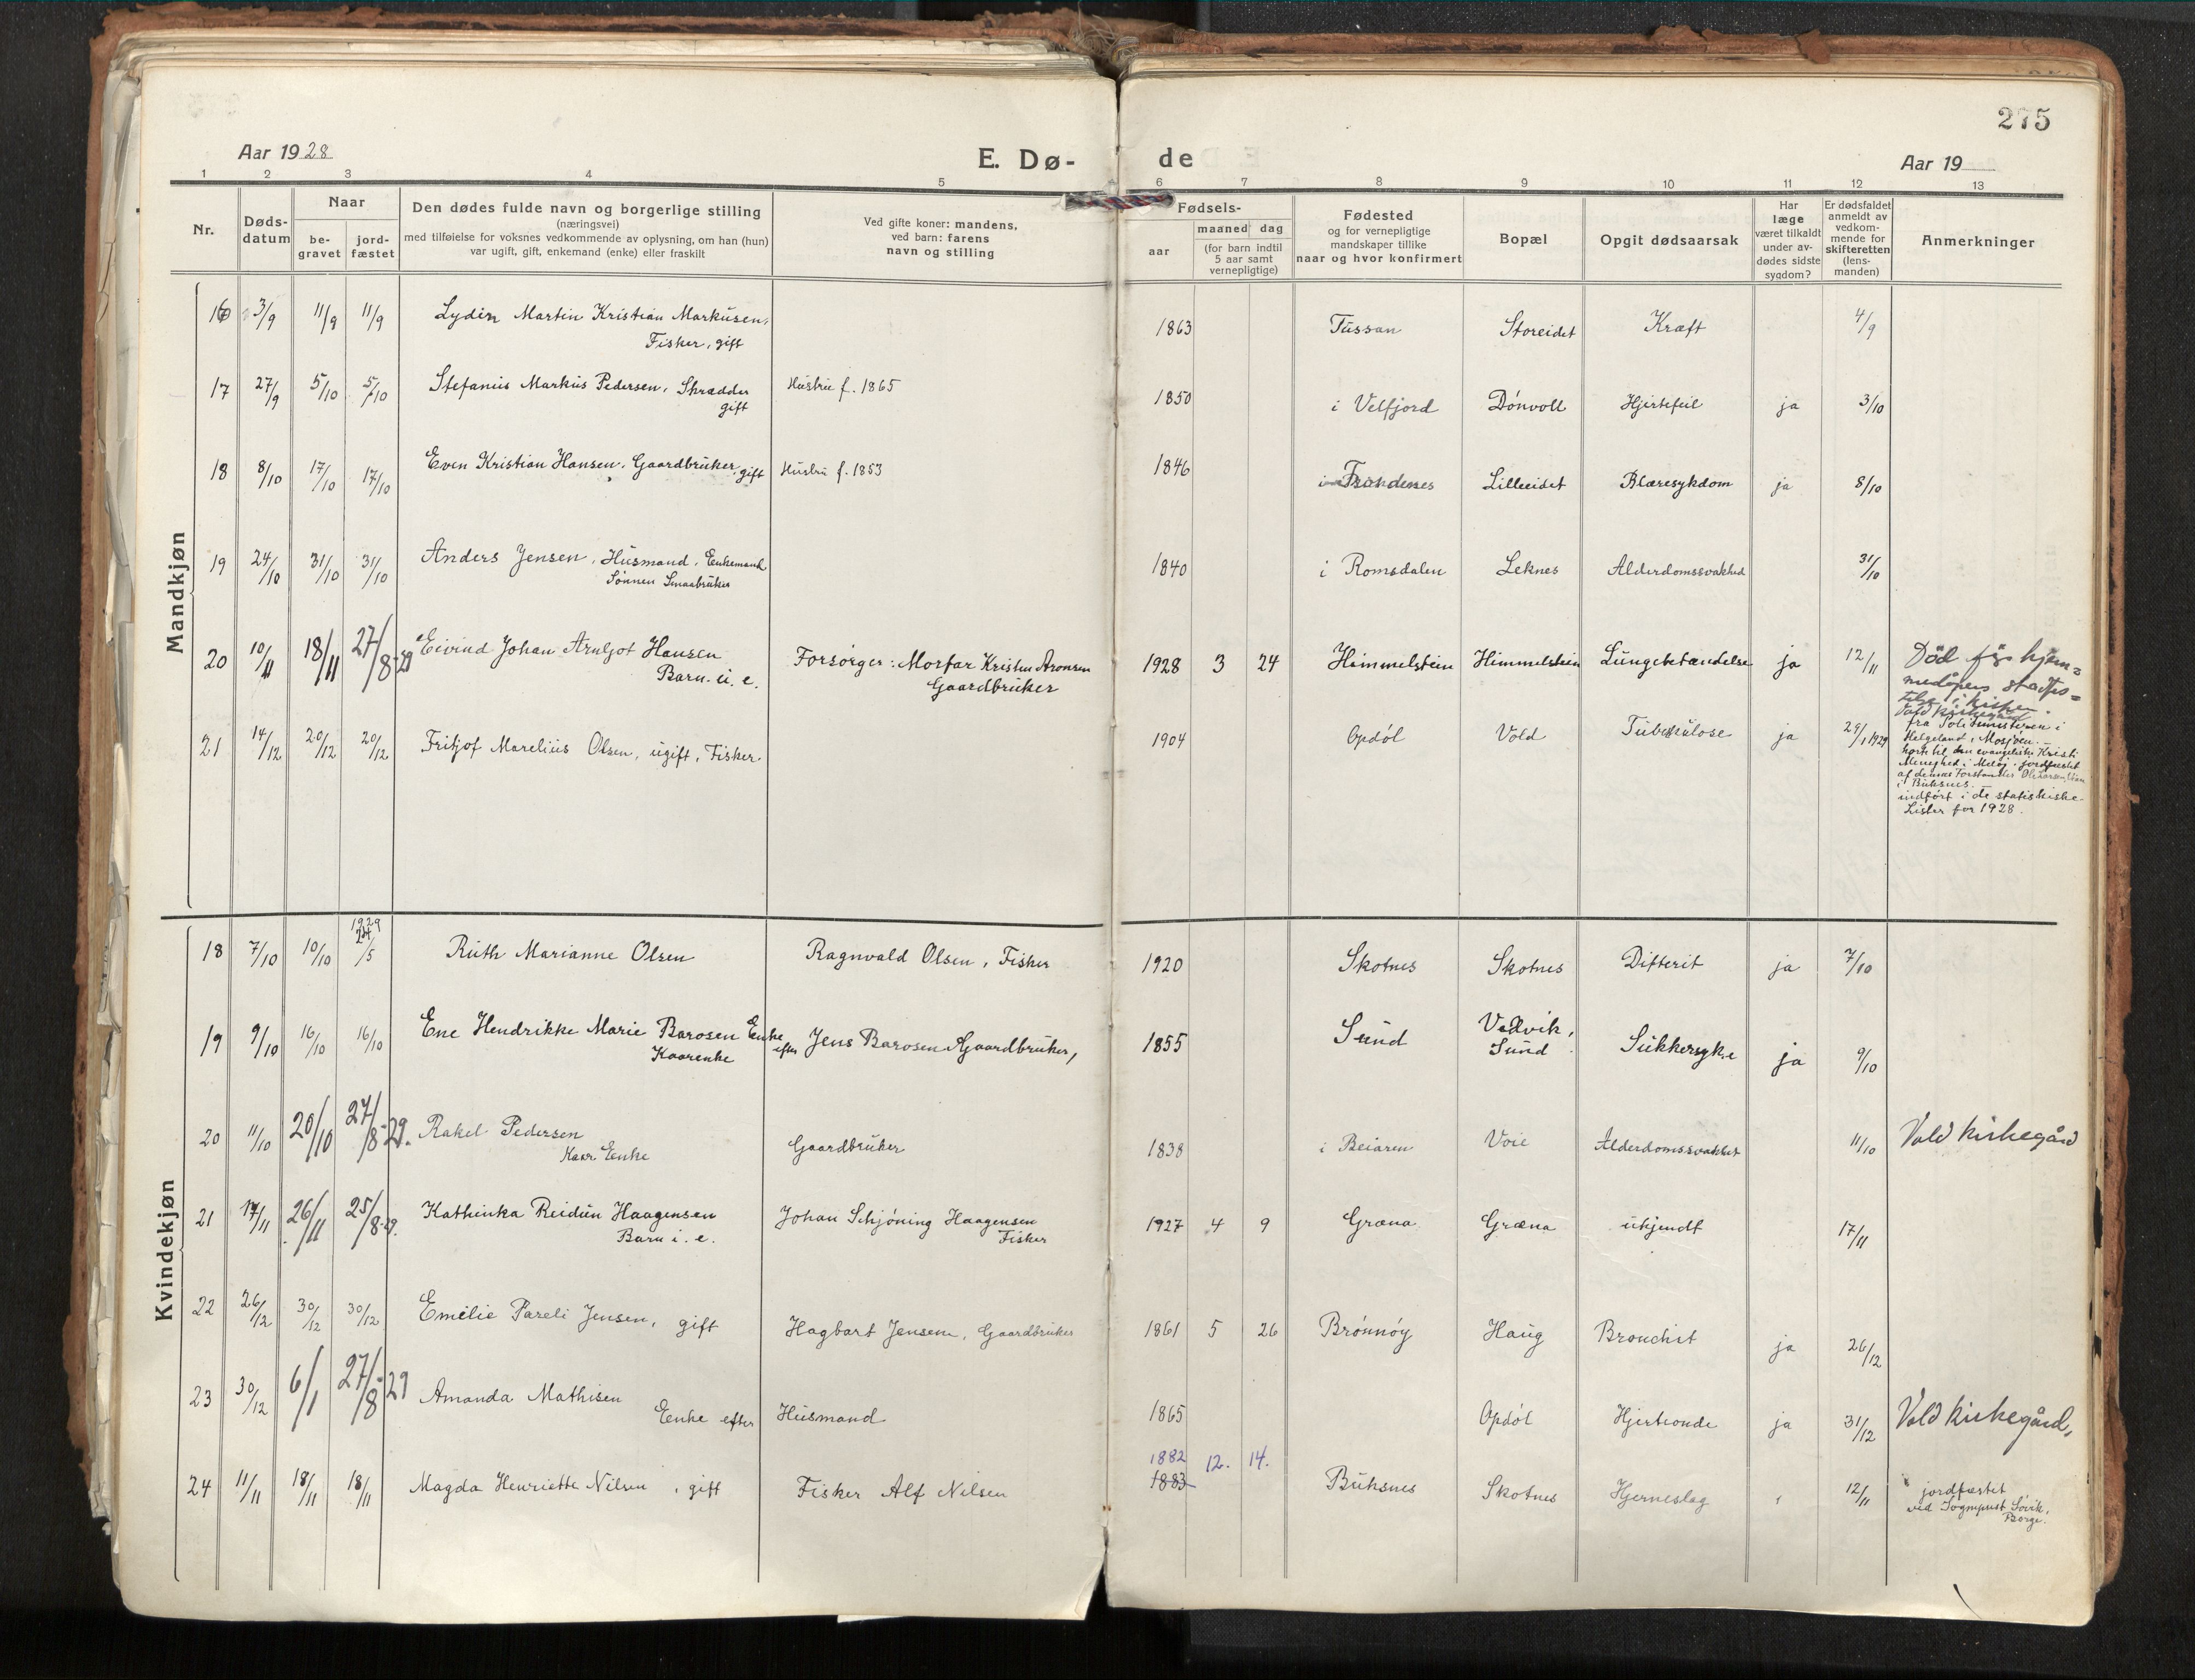 275
Aar 1928
E. Dø-
de
Aar 19
1 2 3 4 5 6 7 8 9 10 11 12 13
Nr.
Døds-
datum
Naar
be-
gravet
jord-
fæstet
Den dødes fulde navn og borgerlige stilling
(næringsvei)
med tilføielse for voksnes vedkommende av oplysning, om han (hun)
var ugift, gift, enkemand (enke) eller fraskilt
Ved gifte koner: mandens,
ved barn: farens
navn og stilling
Fødsels-
aar
maaned dag
(for barn indtil
5 aar samt
vernepligtige)
Fødested
og for vernepligtige
mandskaper tillike
naar og hvor konfirmert
Bopæl
Opgit dødsaarsak
Har
læge
været tilkaldt
under av-
dødes sidste
sygdom?
Er dødsfaldet
anmeldt av
vedkom-
mende for
skifteretten
(lens-
manden)
Anmerkninger
Mandkjøn
16 3/9 11/9 11/9 Lydin Martin Kristian Markusen, 1863 Tussan Storeidet Kræft 4/9
Fisker, gift
17 27/9 5/10 5/10 Stefanus Markus Pedersen, Skrædder Hustru f. 1865 1850 i Velfjord Dönvoll Hjertefeil ja 3/10
gift
18 8/10 17/10 17/10 Even Kristian Hansen, Gaardbruker, gift Hustru f. 1853 1846 i Lilleeidet Blæresykdom ja 8/10
19 24/10 31/10 31/10 Anders Jensen, Husmand, Enkemand 1840 i Romsdalen Leknes Alderdomssvakhed 31/10
Sönnen Smaabruker
20 10/11 18/11 27/8-29 Eivind Johan Arnljot Hansen Forsörger: Morfar Kristen Aronsen 1928 3 24 Himmelstein Himmelstein Lungebetændelse ja 12/11 Död för hjem=
Barn u. e. Gaardbruker
21 14/12 20/12 20/12 Fritjof Marelius Olsen, ugift, Fisker 1904 Opdöl Vold Tuberkulose ja 29/1 1929 fra Politimesteren i
Helgeland, Mosjöen. —
hörte til den evangeliske Kristi
Menighed i Melöy. jordfæstet
af denes Forstander
i Buksnes. —
indfört i de statistiske
Lister for 1928.
Kvindekjøn
1929
18 7/10 10/10 24/5 Ruth Marianne Olsen Ragnvald Olsen, Fisker 1920 Skotnes Skotnes Difterit ja 7/10
19 9/10 16/10 16/10 Ene Hendrikke Marie Barosen Enke efter Jens Barosen Gaardbruker, 1855 Sund Vedvik, Sund Sukkersyke ja 9/10
Kaarenke
20 11/10 20/10 27/8-29. Rakel Pedersen Gaardbruker 1838 i Beiaren Voie Alderdomssvakhet 11/10 Vold kirkegård
Kaar Enke
21 17/11 26/11 25/8-29. Kathinka Reidun Haagensen Johan Schjöning Haagensen 1927 4 9 Græna Græna ukjendt 17/11
Barn i. e. Fisker
22 26/12 30/12 30/12 Emelie Pareli Jensen, gift Hagbart Jensen, Gaardbruker 1861 5 26 Brönnöy Haug Bronchit ja 26/12
23 30/12 6/1 27/8-29 Amanda Mathisen 1865 Opdöl Hjerteonde ja 31/12 Vold kirkegård,
Enke efter Husmand
1882 12. 14.
24 11/11 18/11 18/11 Magda Henriette Nilsen, gift Fisker Alf Nilsen 1883 Buksnes Skotnes Hjerneslag 12/11 jordfæstet
ved Sogneprest Sövik,
Borge.